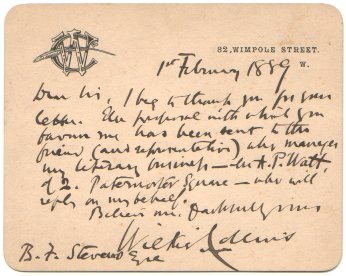 WC
82, WIMPOLE STREET.
W.
1st February 1889
Dear Sir, I beg to thank you for your
letter. The proposal with which you
favour me has been sent to the
friend (and representative) who manages
my literary business — Mr A. P. Watt
of 2. Paternoster Square — who will
reply on my behalf.
Believe me Faithfully yours
Wilkie Collins
B. F. Stevens Esqre